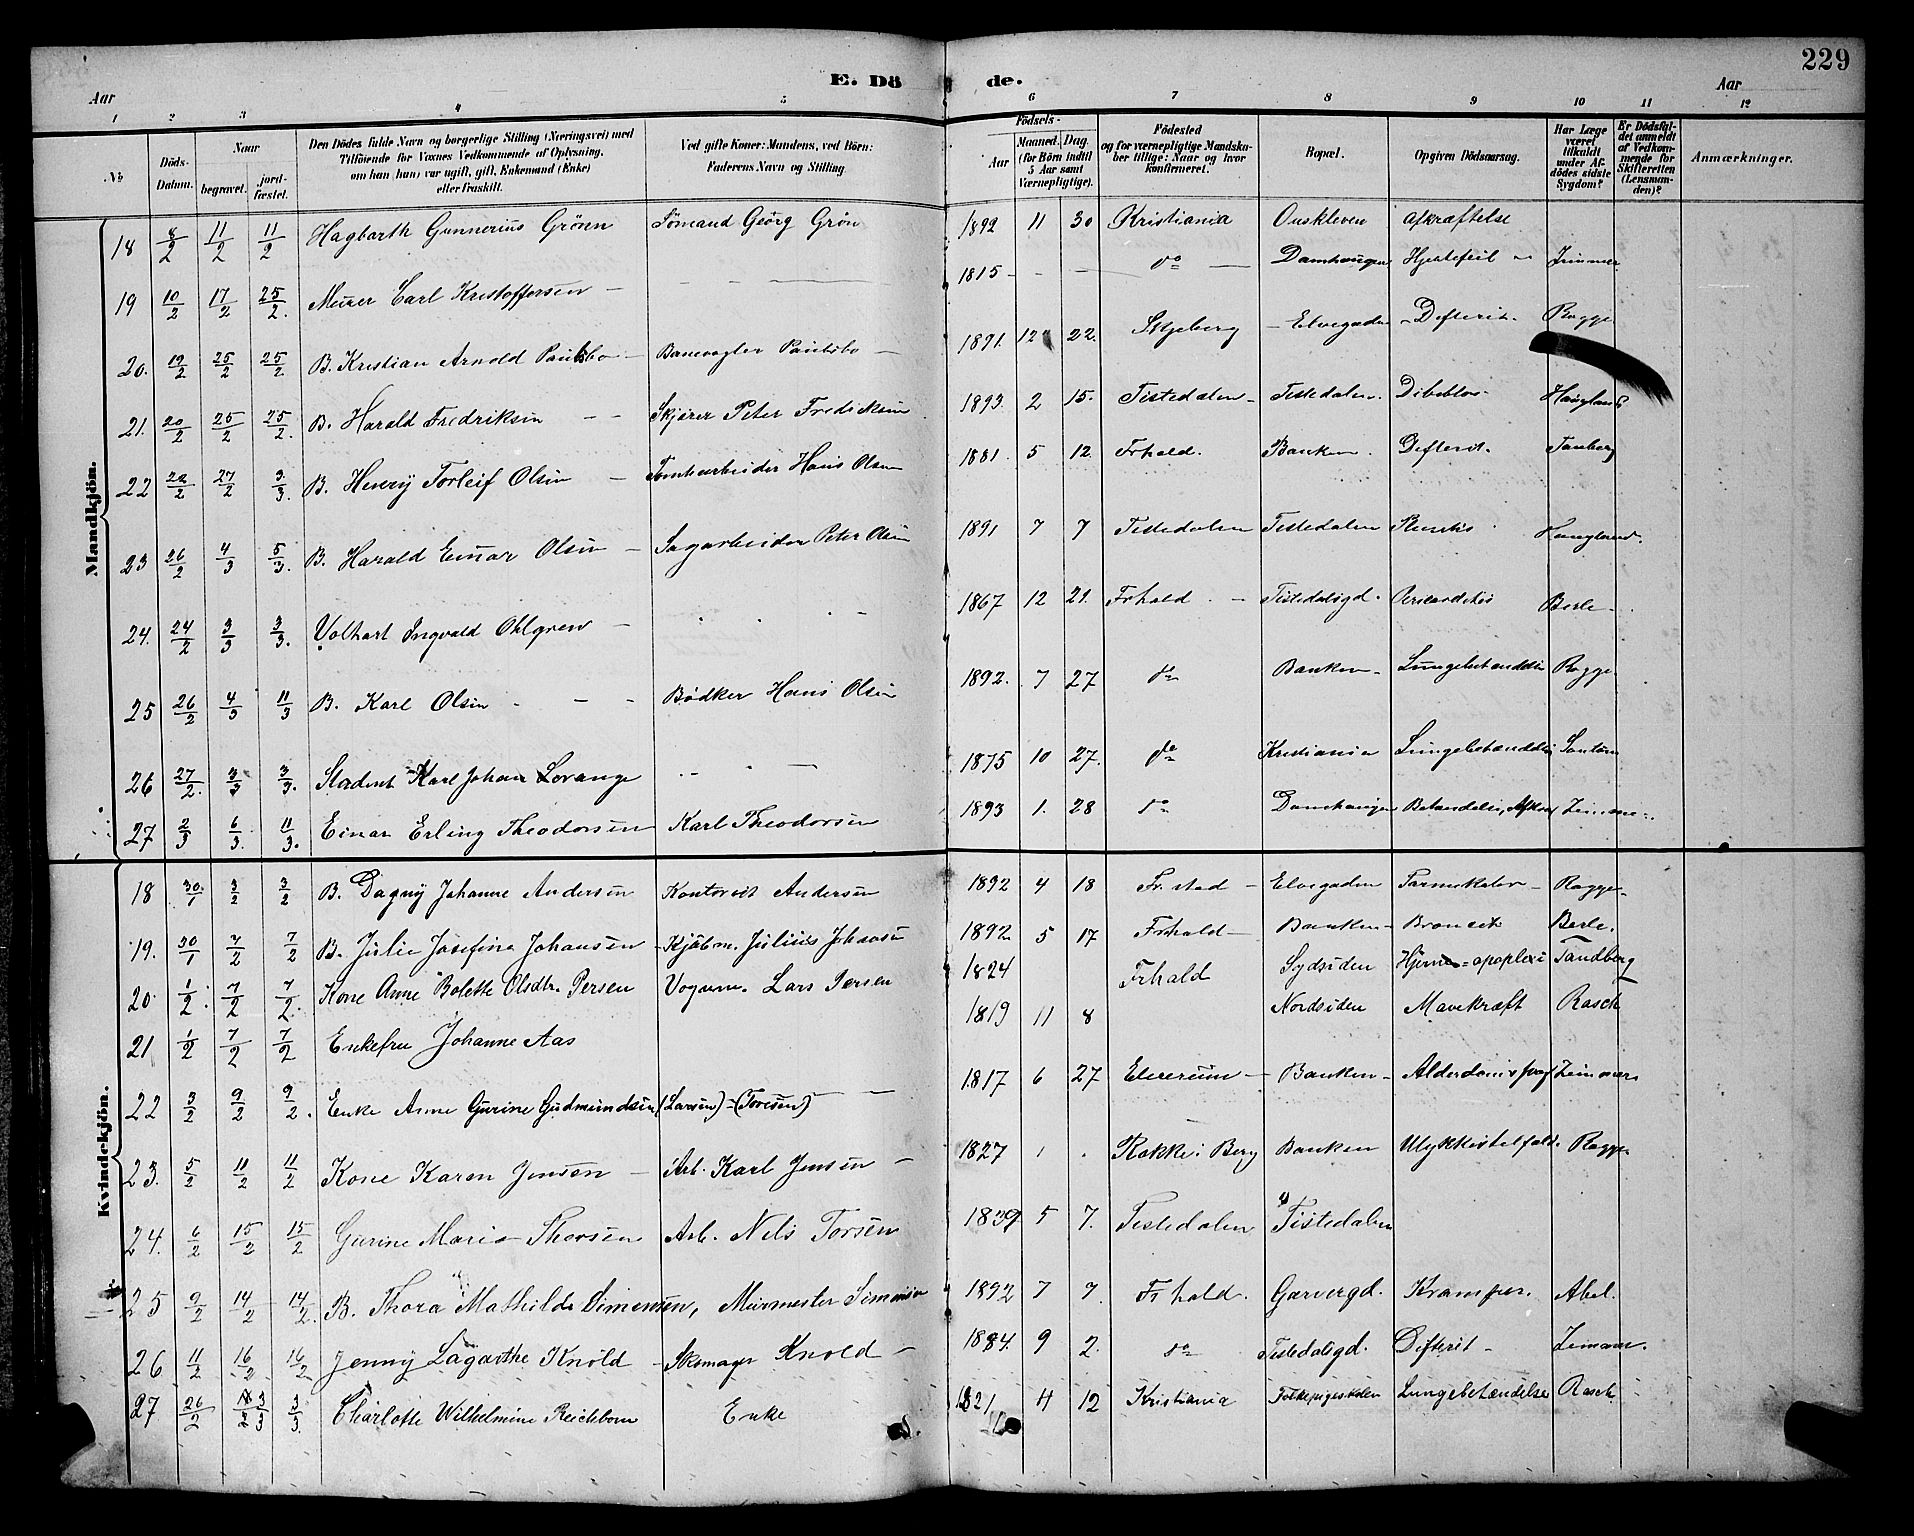 229
E. Døde.
Aar
Aar
1 2 3 4 5 6 7 8 9 10 11 12
No
Döds-Datum.
Naar
begravet.
jordfæstet.
Den Dödes fulde Navn og borgerlige Stilling (Næringsvei) med Tilföiende for Voxnes Vedkommende af Oplysning, om han (hun) var ugift, gift, Enkemand (Enke) eller fraskilt.
Ved gifte Koner: Mandens, ved Börn: Faderens Navn og Stilling
Födsels-
Aar
Maaned. Dag. (for Börn indtil 5 Aar samt Værnepligtige).
Födested og for værnepligtige Mandskaber tillige: Naar og hvor konfirmeret.
Bopæl.
Opgiven Dödsaarsag.
Har Læge været tilkaldt under Afdödes sidste Sygdom?
Er Dödsfaldet anmeldt af Vedkommende for Skifteretten (Lensmanden)?
Anmærkninger.
Mandkjön.
18 8/2 11/2 11/2 Hagbarth Gunnerius Grøen Sömand Georg Grön 1892 11 30 Kristiania Ouskleven Afkræftelse
19 10/2 17/2 25/2. Murer Carl Kristoffersen – 1815 – – – do – Damhaugen Hjertefeil – Zimmer
20. 19/2 25/2 25/2 B. Kristian Arnold Paulsbo – Banevogter Paulsbo – 1891. 12 22. Skjeberg – Elvegaden – Difterit. Rogge
21. 20/2 25/2 25/2. B. Harald Fredriksen – – Skjærer Peter Fredriksen 1893. 2 15. Tistedalen – Tistedalen. Haugland
22 22/2 27/2 3/3. B. Henry Torleif Olsen – Tomtearbeider Hans Olsen 1881 5 12. Frhald. Banken. Difterit. Tanberg
23 26/2 4/3 5/3. B. Harald Einar Olsen – Sagarbeider Peter Olsen 1891 7 7 Tistedalen Tistedalen Haugland.
24. 24/2 3/3 3/3. Volhart Ingvald Ohlgren – 1867 12 21. Frhald – Tistedalsgd. Berle –
25 26/2 4/3 11/3 B. Karl Olsen – – Bødker Hans Olsen 1892. 7 27 do Banken – Lungebetændelse Rogge
26 27/2. 3/3 3/3. Student Karl Johan Lorange 1875 10 27. do Kristiania Lungebetændelse
27 2/3 6/3. 11/3. Einar Erling Theodorsen Karl Theodorsen 1893 1. 28 do Damhaugen Zimmer
Kvindekjön.
18 30/1 3/2 3/2 B. Dagny Johanne Andersen Kontorist Andersen 1892 4 18 Fr. stad – Elvegaden Rogge –
19. 30/1 7/2 7/2 B. Julie Josefine Johansen – Kjøbm. Julius Johansen 1892 5 17 Frhald – Banken – Berle.
20. 1/2. 7/2 7/2. Kone Anne Bolette Olsdtr. Persen Vognm. Lars Persen 1824 Frhald Sydsiden Hjerne=apoplexi Tandberg
21 1/2 7/2 7/2 Enkefru Johanne Aas 1819 11 8 Nordsiden Mavekræft Rasch
22 3/2 9/2 9/2. Enke Anne Gurine Gudmundsen (Larsen) – (Toresen) – 1817 6 27 Elverum – Banken – Zimmer
23. 5/2 11/2 11/2 Kone Karen Jensen – Arb. Karl Jensen – 1827 Rokke i Berg Banken Ulykkestilfælde Rogge
24. 6/2 15/2 15/2 Gurine Marie Thorsen Arb. Nils Torsen 1839 5 7. Tistedalen Tistedalen
25 9/2 14/2 14/2. B. Thora Mathilde Simensen, Murmester Simensen 1892 7 7. Frhald. Garvergd. Kramper. Abel.
26 11/2 16/2 16/2. Jenny Lagarthe Knold – Skomager Knold – 1884. 9 2. do Tistedalsgd. Difterit – Zimmer.
27 26/2 3/3 3/3. Charlotte Wilhelmine Reichborn Enke 1821 4 12 Kristiania Lungebetændelse Rasch